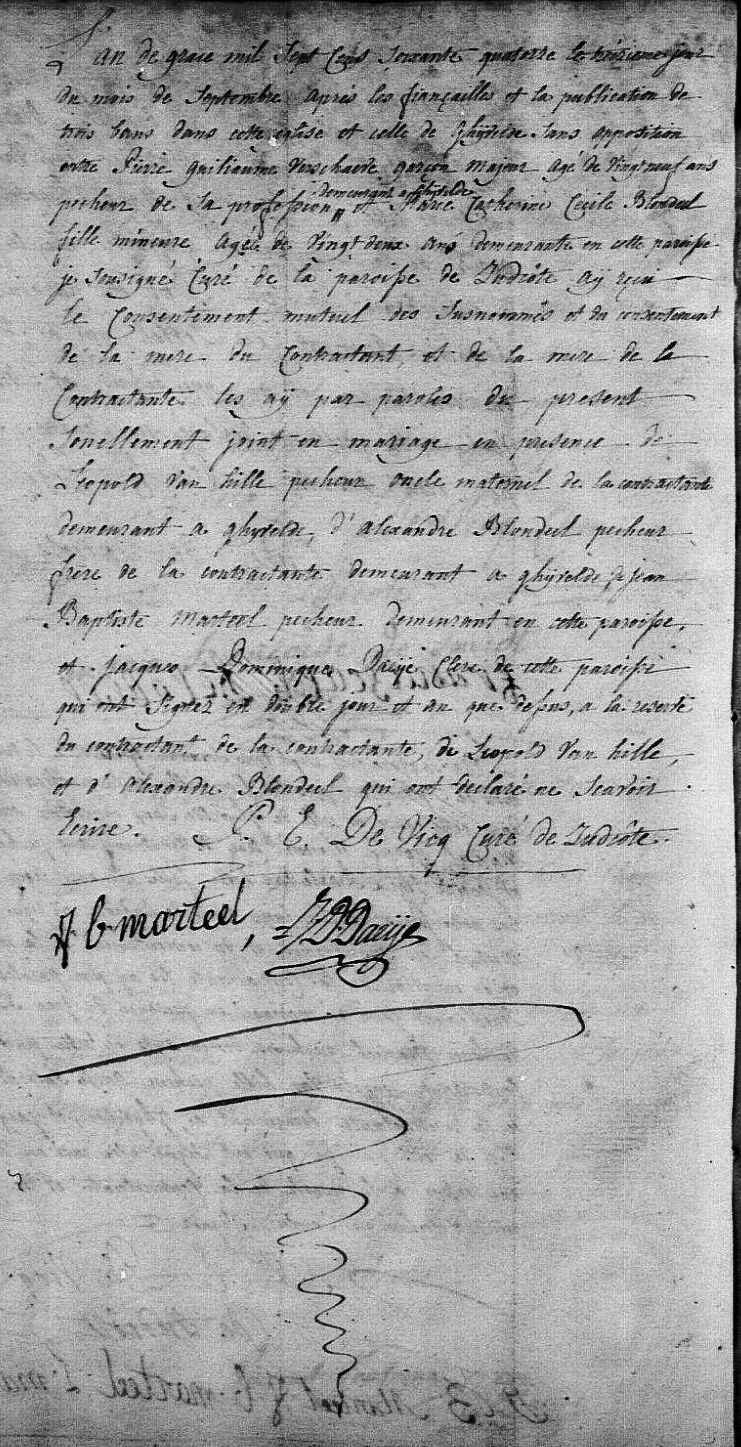 L'an de grace mil Sept Cens Soixante quatorze le treizieme jour
du mois de Septembre après les fiançailles et la publication de
trois bans dans cette eglise et celle de Ghyvelde sans opposition
entre Pierre guiliaume Verschaeve garçon majeur agé de vingt neuf ans
demeurant a ghyvelde
pecheur de sa profession, et Marie Catherine Cecile Blondeel
fille mineure agée de vingt deux ans demeurante en cette paroisse
je Sousigné Curé de la paroisse de Zudcôte aÿ reçu
le Consentement mutuel des Susnommés et du consentement
de la mere du Contractant, et de la mere de la
Contractante les aÿ par paroles du present
Sonellement joint en mariage en presence de
Leopold Van hille pecheur oncle maternel de la contractante
demeurant a ghyvelde, d'alexandre Blondeel pecheur
frere de la contractante demeurant a ghyvelde, jean
Baptiste Marteel pecheur demeurant en cette paroisse,
et jacques Dominique Daeÿe Clerc de cette paroisse
qui ont Signez en double jour et an que dessus, a la reserve
du contractant de la contractante, de Leopold Van hille,
et d'alexandre Blondeel qui ont declaré ne Scavoir
Ecrire. P. E. De Vicq Curé de Zudcôte.
J b marteel, J D Daeÿe